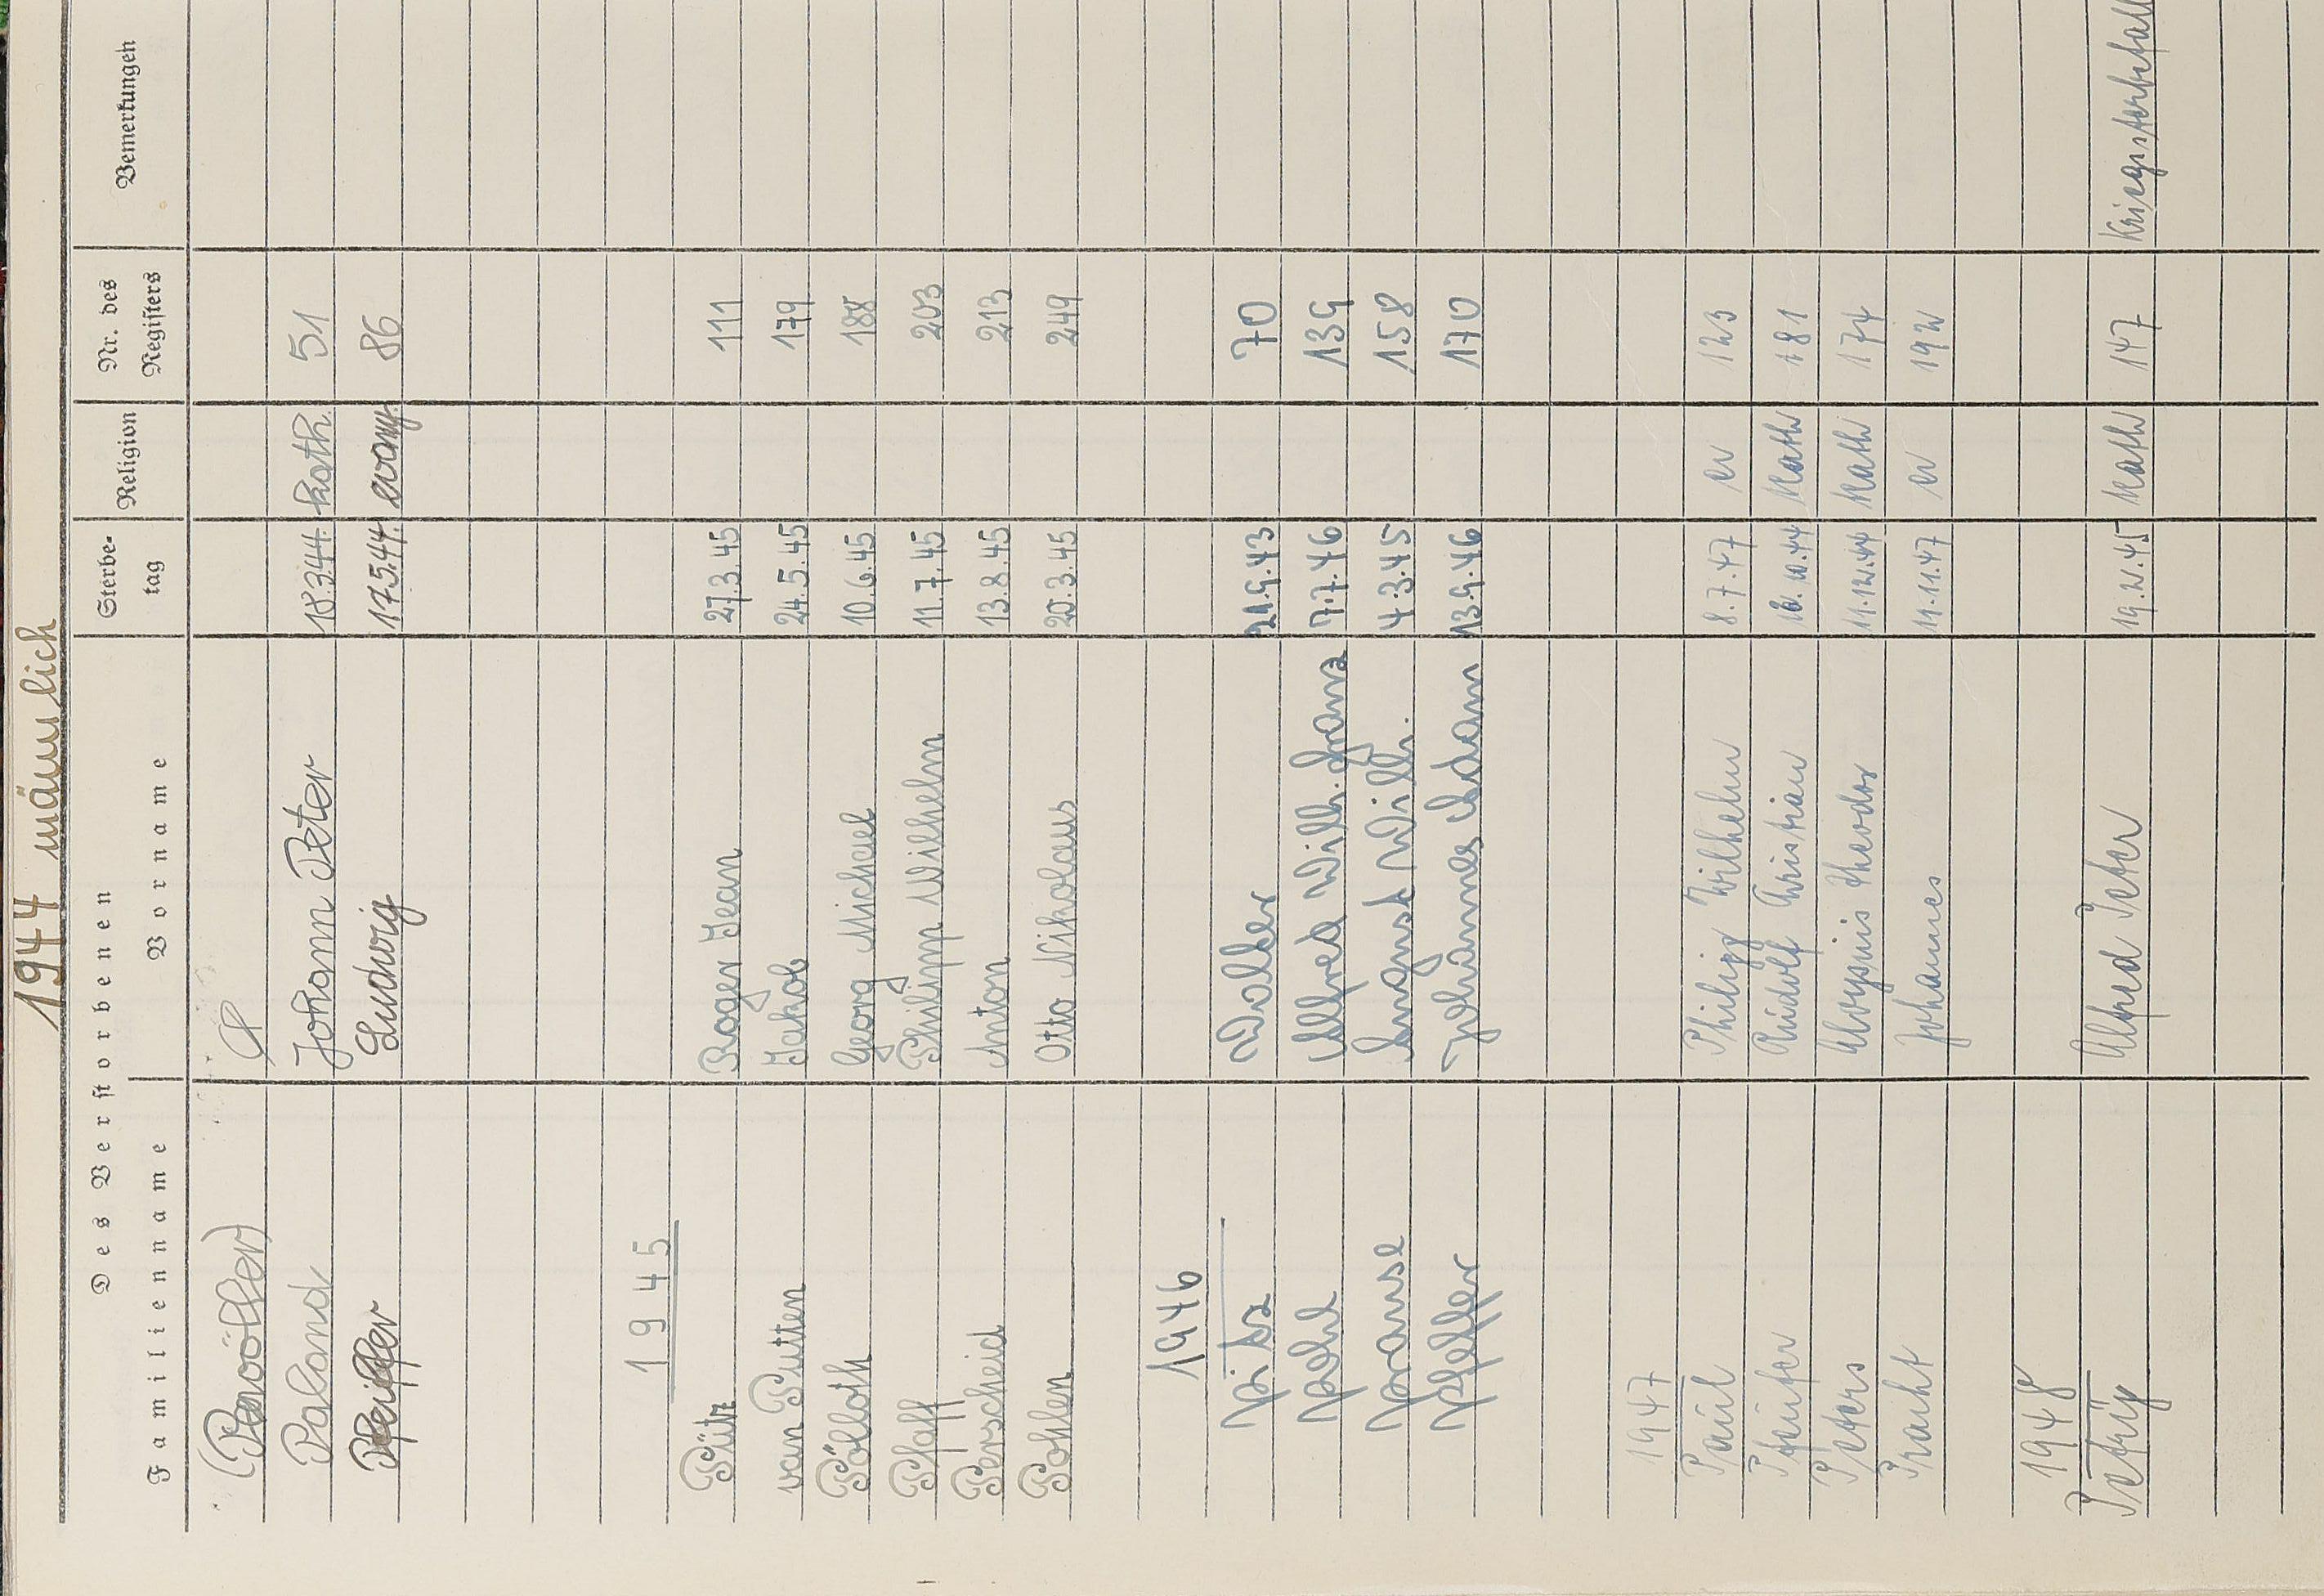 1944 männlich
Des Verstorbenen
Familienname Vorname Sterbe-tag Religion Nr. des Registers Bemerkungen
P
Paland Johann Peter 18.3.44. kath. 51
Pfeiffer Ludwig 17.5.44. evang. 86
1945
Pütz Roger Jean 27.3.45 111
van Putten Jakob 24.5.45 179
Pölloth Georg Michael 10.6.45 188
Pfaff Philipp Wilhelm 11.7.45 203
Perscheid Anton 13.8.45 213
Pohlen Otto Nikolaus 20.3.45 249
1946
Pitz Walter 21.9.43 70
Pohl Alfred Wilh. Franz 7.7.46 139
Prause August Wilh. 4.3.45 158
Pfeffer Johannes Adam 13.9.46 170
1947
Paul Philipp Wilhelm 8.7.47 ev 123
Rudolf Christian kath 181
Peters Aloysius Theodor 11.12.44 kath 174
Pracht Johannes 11.11.47 ev 192
1948
Petry Alfred Peter 19.2.45 kath 147 Kriegssterbefall